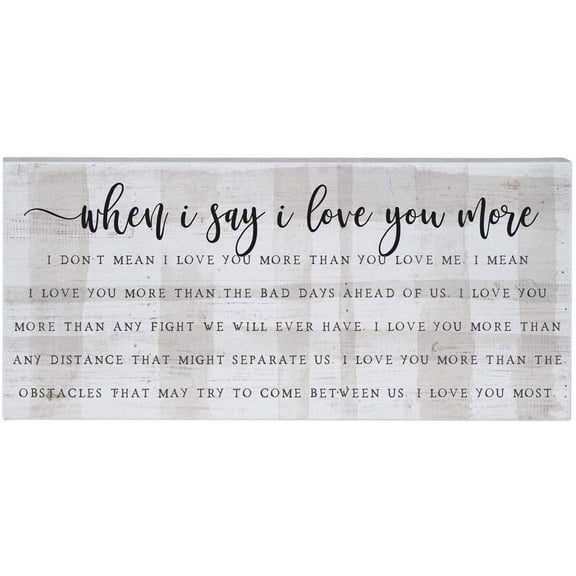 when i say i love you more
I DON'T MEAN I LOVE YOU MORE THAN YOU LOVE ME. I MEAN
I LOVE YOU MORE THAN THE BAD DAYS AHEAD OF US. I LOVE YOU
MORE THAN ANY FIGHT WE WILL EVER HAVE. I LOVE YOU MORE THAN
ANY DISTANCE THAT MIGHT SEPARATE US. I LOVE YOU MORE THAN THE
OBSTACLES THAT MAY TRY TO COME BETWEEN US. I LOVE YOU MOST.